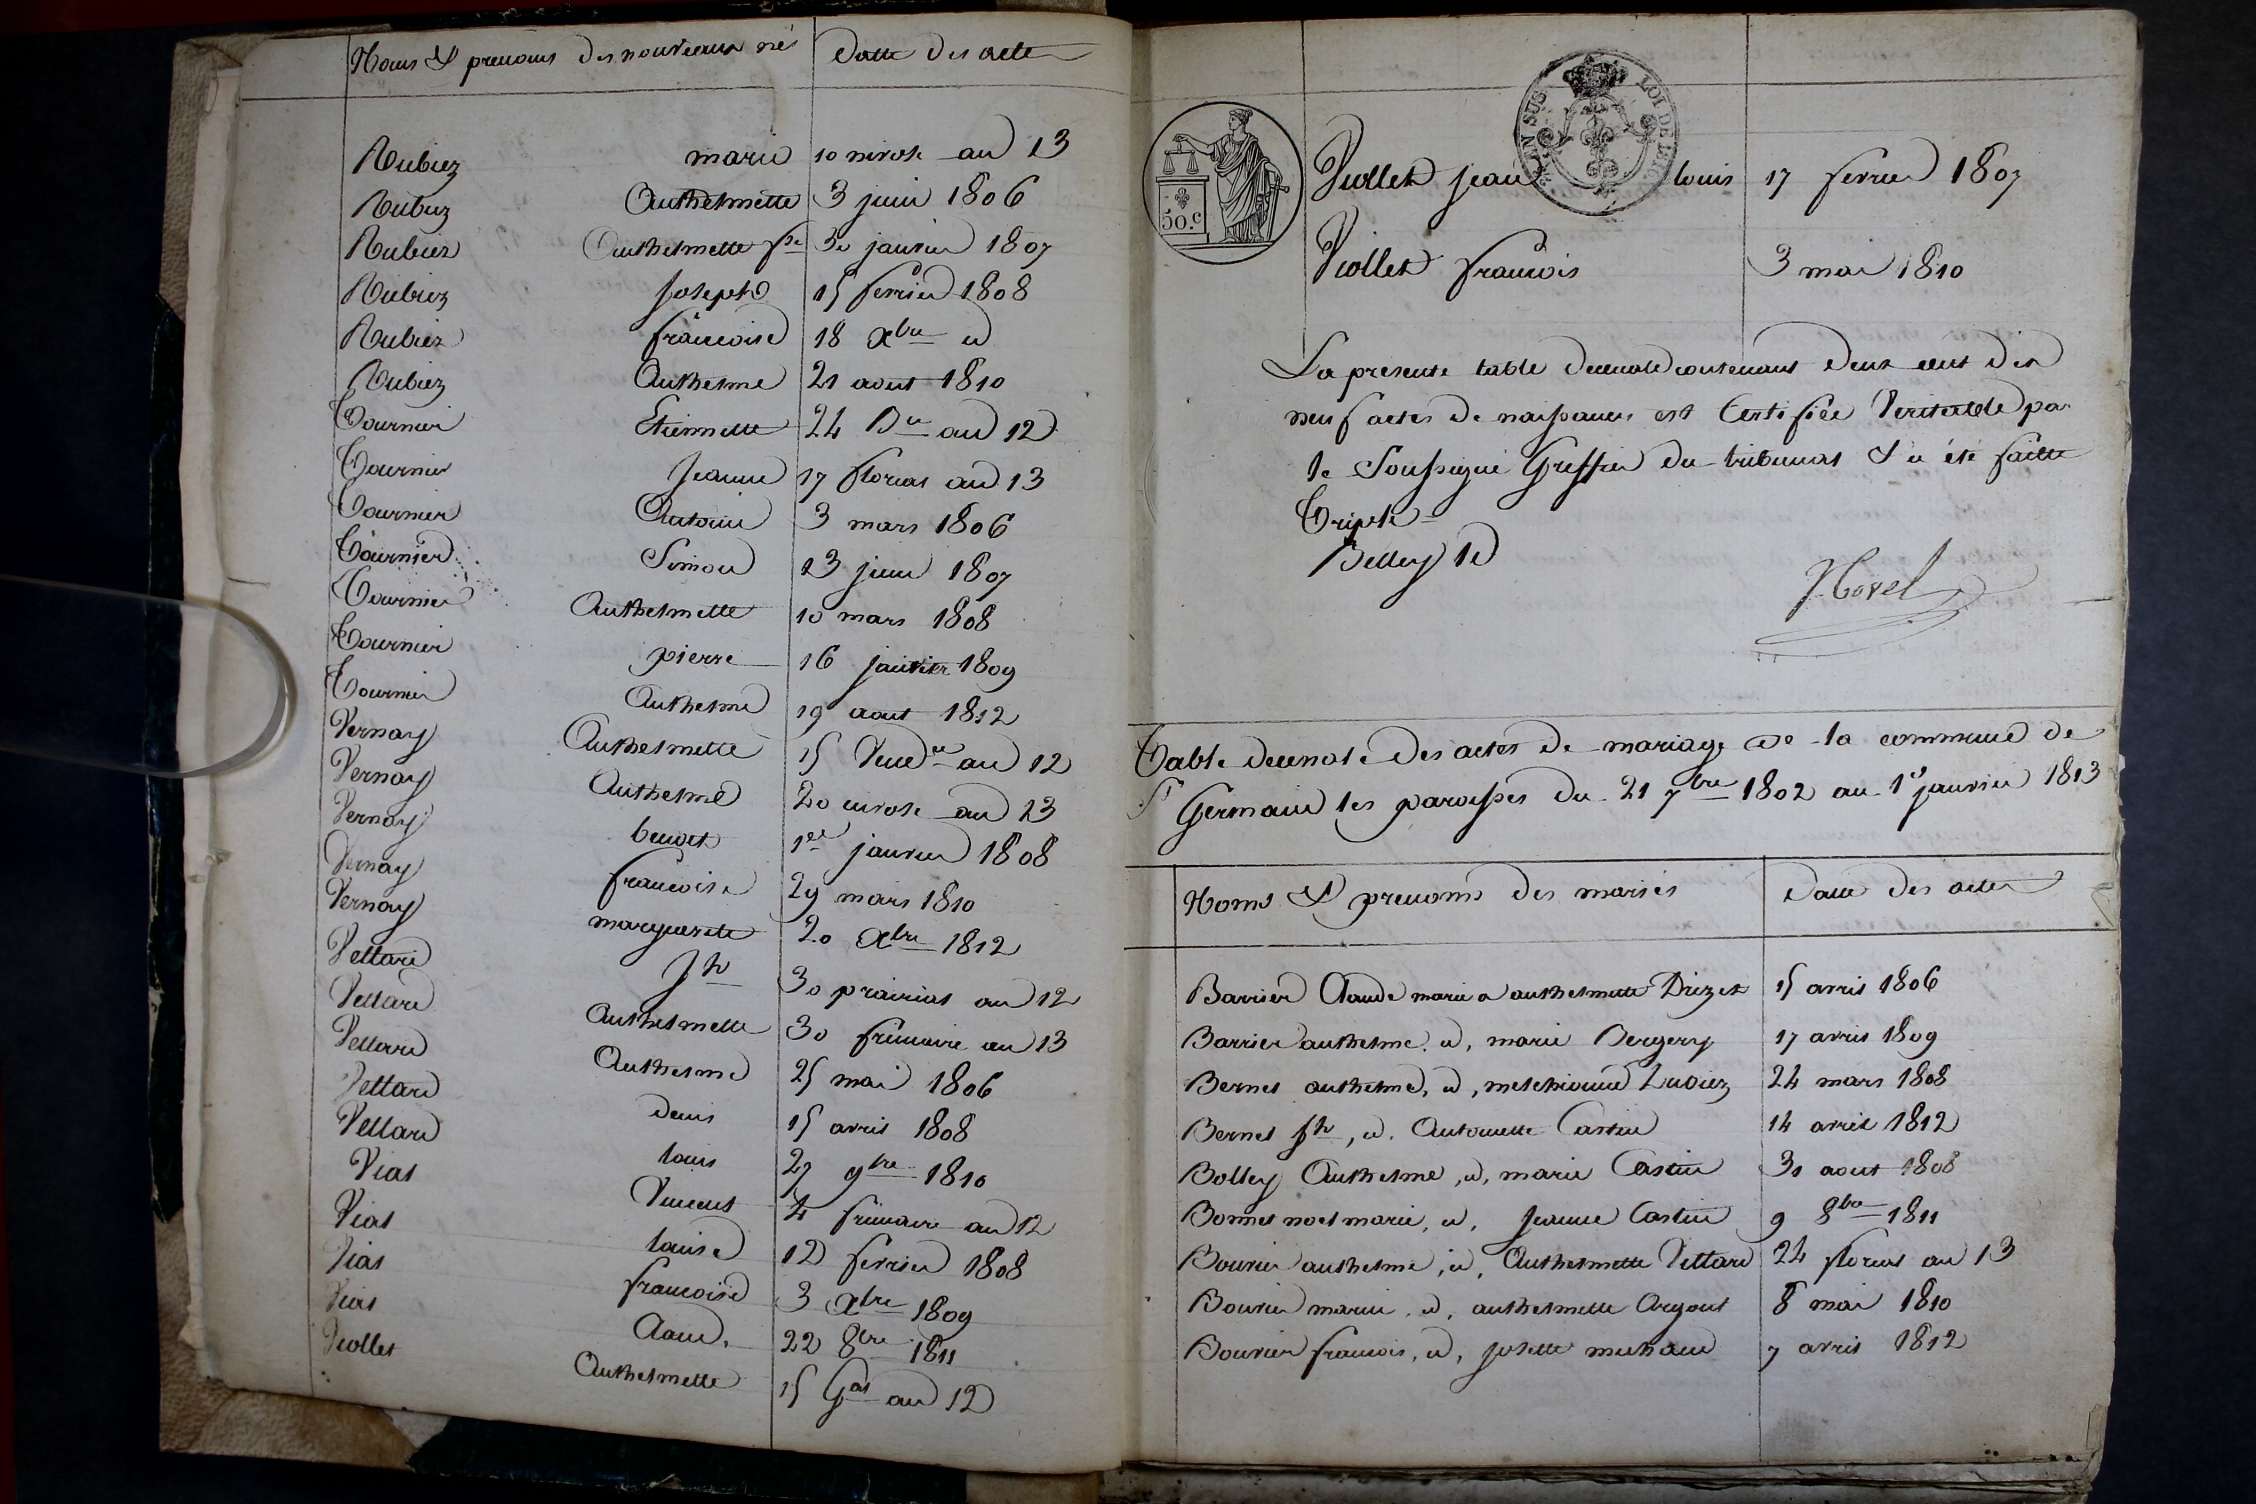 Noms & prenoms des nouveaux nés Datte des acte
Rubiez marie 10 nivose an 13
Rubiez Anthelmette 3 juin 1806
Rubiez Anthelmette fse 30 janvier 1807
Rubiez Joseph 15 fevrier 1808
Rubiez francoise 18 Xbre id
Rubiez Anthelme 21 aout 1810
Tournier Etiennette 24 Bre an 12
Tournier Jeanne 17 floreal an 13
Tournier Antoine 3 mars 1806
Tournier Simon 23 juin 1807
Tournier Anthelmette 10 mars 1808
Tournier pierre 16 janvier 1809
Tournier Anthelme 19 aout 1812
Vernay Anthelmette 15 Vendre an 12
Vernay Anthelme 20 nivose an 13
Vernay benoit 1er janvier 1808
Vernay francoise 29 mars 1810
Vernay marguerite 20 Xbre 1812
Vettard Jh 30 prairial an 12
Vettard Anthelmette 30 frimaire an 13
Vettard Anthelme 25 mai 1806
Vettard denis 15 avril 1808
Vettard louis 27 9bre 1810
Vial Vincent 4 frimaire an 12
Vial louise 12 fevrier 1808
Vial francoise 3 Xbre 1809
Vial Claud. 22 8bre 1811
Viollet Anthelmette 15 Gal an 12
50.c
LOI DE
Viollet jean louis 17 fevrier 1807
Viollet francois 3 mai 1810
La presente table decenale contenant deux cent dix
neuf actes de naissances est Certifiée Veritable par
le Soussigné Greffier du tribunal & a été faitte
Triple
Belley le
Morel
Table decenale des actes de mariage de la commune de
St Germain les paroisses du 21 7bre 1802 au 1er janvier 1813
Noms & prenoms des mariés Datte des actes
Barrier Claude marie a anthelmette Drizet 15 avril 1806
Barrier anthelme, id, marie Bergery 17 avril 1809
Bernel anthelme, id, melchionne Ludiez 24 mars 1808
Bernel Jh, id. Antoinette Castin 14 avril 1812
Bolley Anthelme, id, marie Castin 31 aout 1808
Bonnet noel marie, id, Jeanne Castin 9 8bre 1811
Bouvier anthelme, id, Anthelmette Vettard 24 floreal an 13
Bouvier marin, id, anthelmette Argout 8 mai 1810
Bouvier francois, id, josette michaud 7 avril 1812